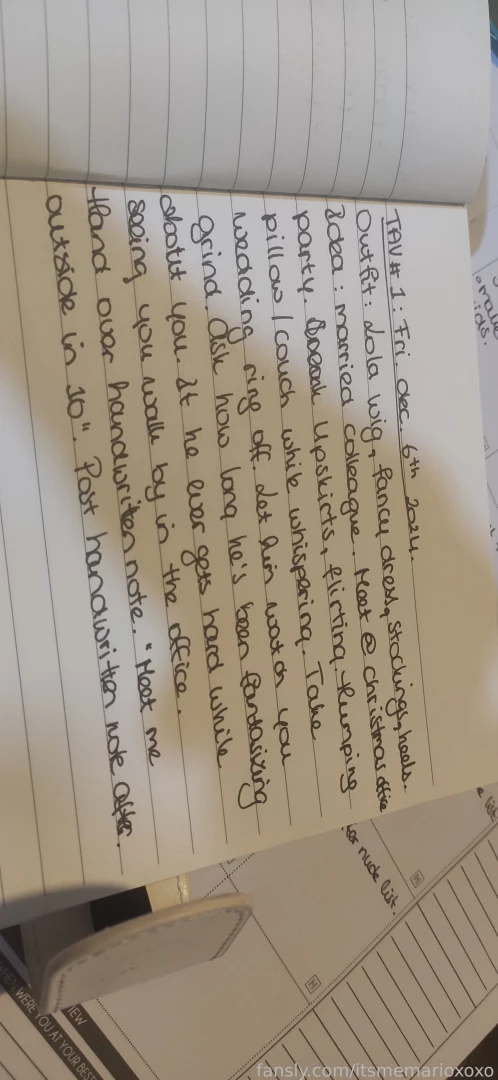 TAV # 1 : Fri. dec. 6th 2024.
Outfit: Lola wig, fancy dress, stockings, heels.
Idea: married colleague. Meet @ christmas office
party. Sneak Upskirts, flirting. Humping
pillow / couch while whispering. Take
wedding ring off. Let him watch you
grind. Ask how long he's been fantasizing
about you. If he ever gets hard while
seeing you walk by in the office.
Hand over handwritten note. "Meet me
outside in 10". Post handwritten note after.
nude list.
H
H
WHEN WERE YOU AT YOUR BEST
fansly.com/itsmemarioxoxo